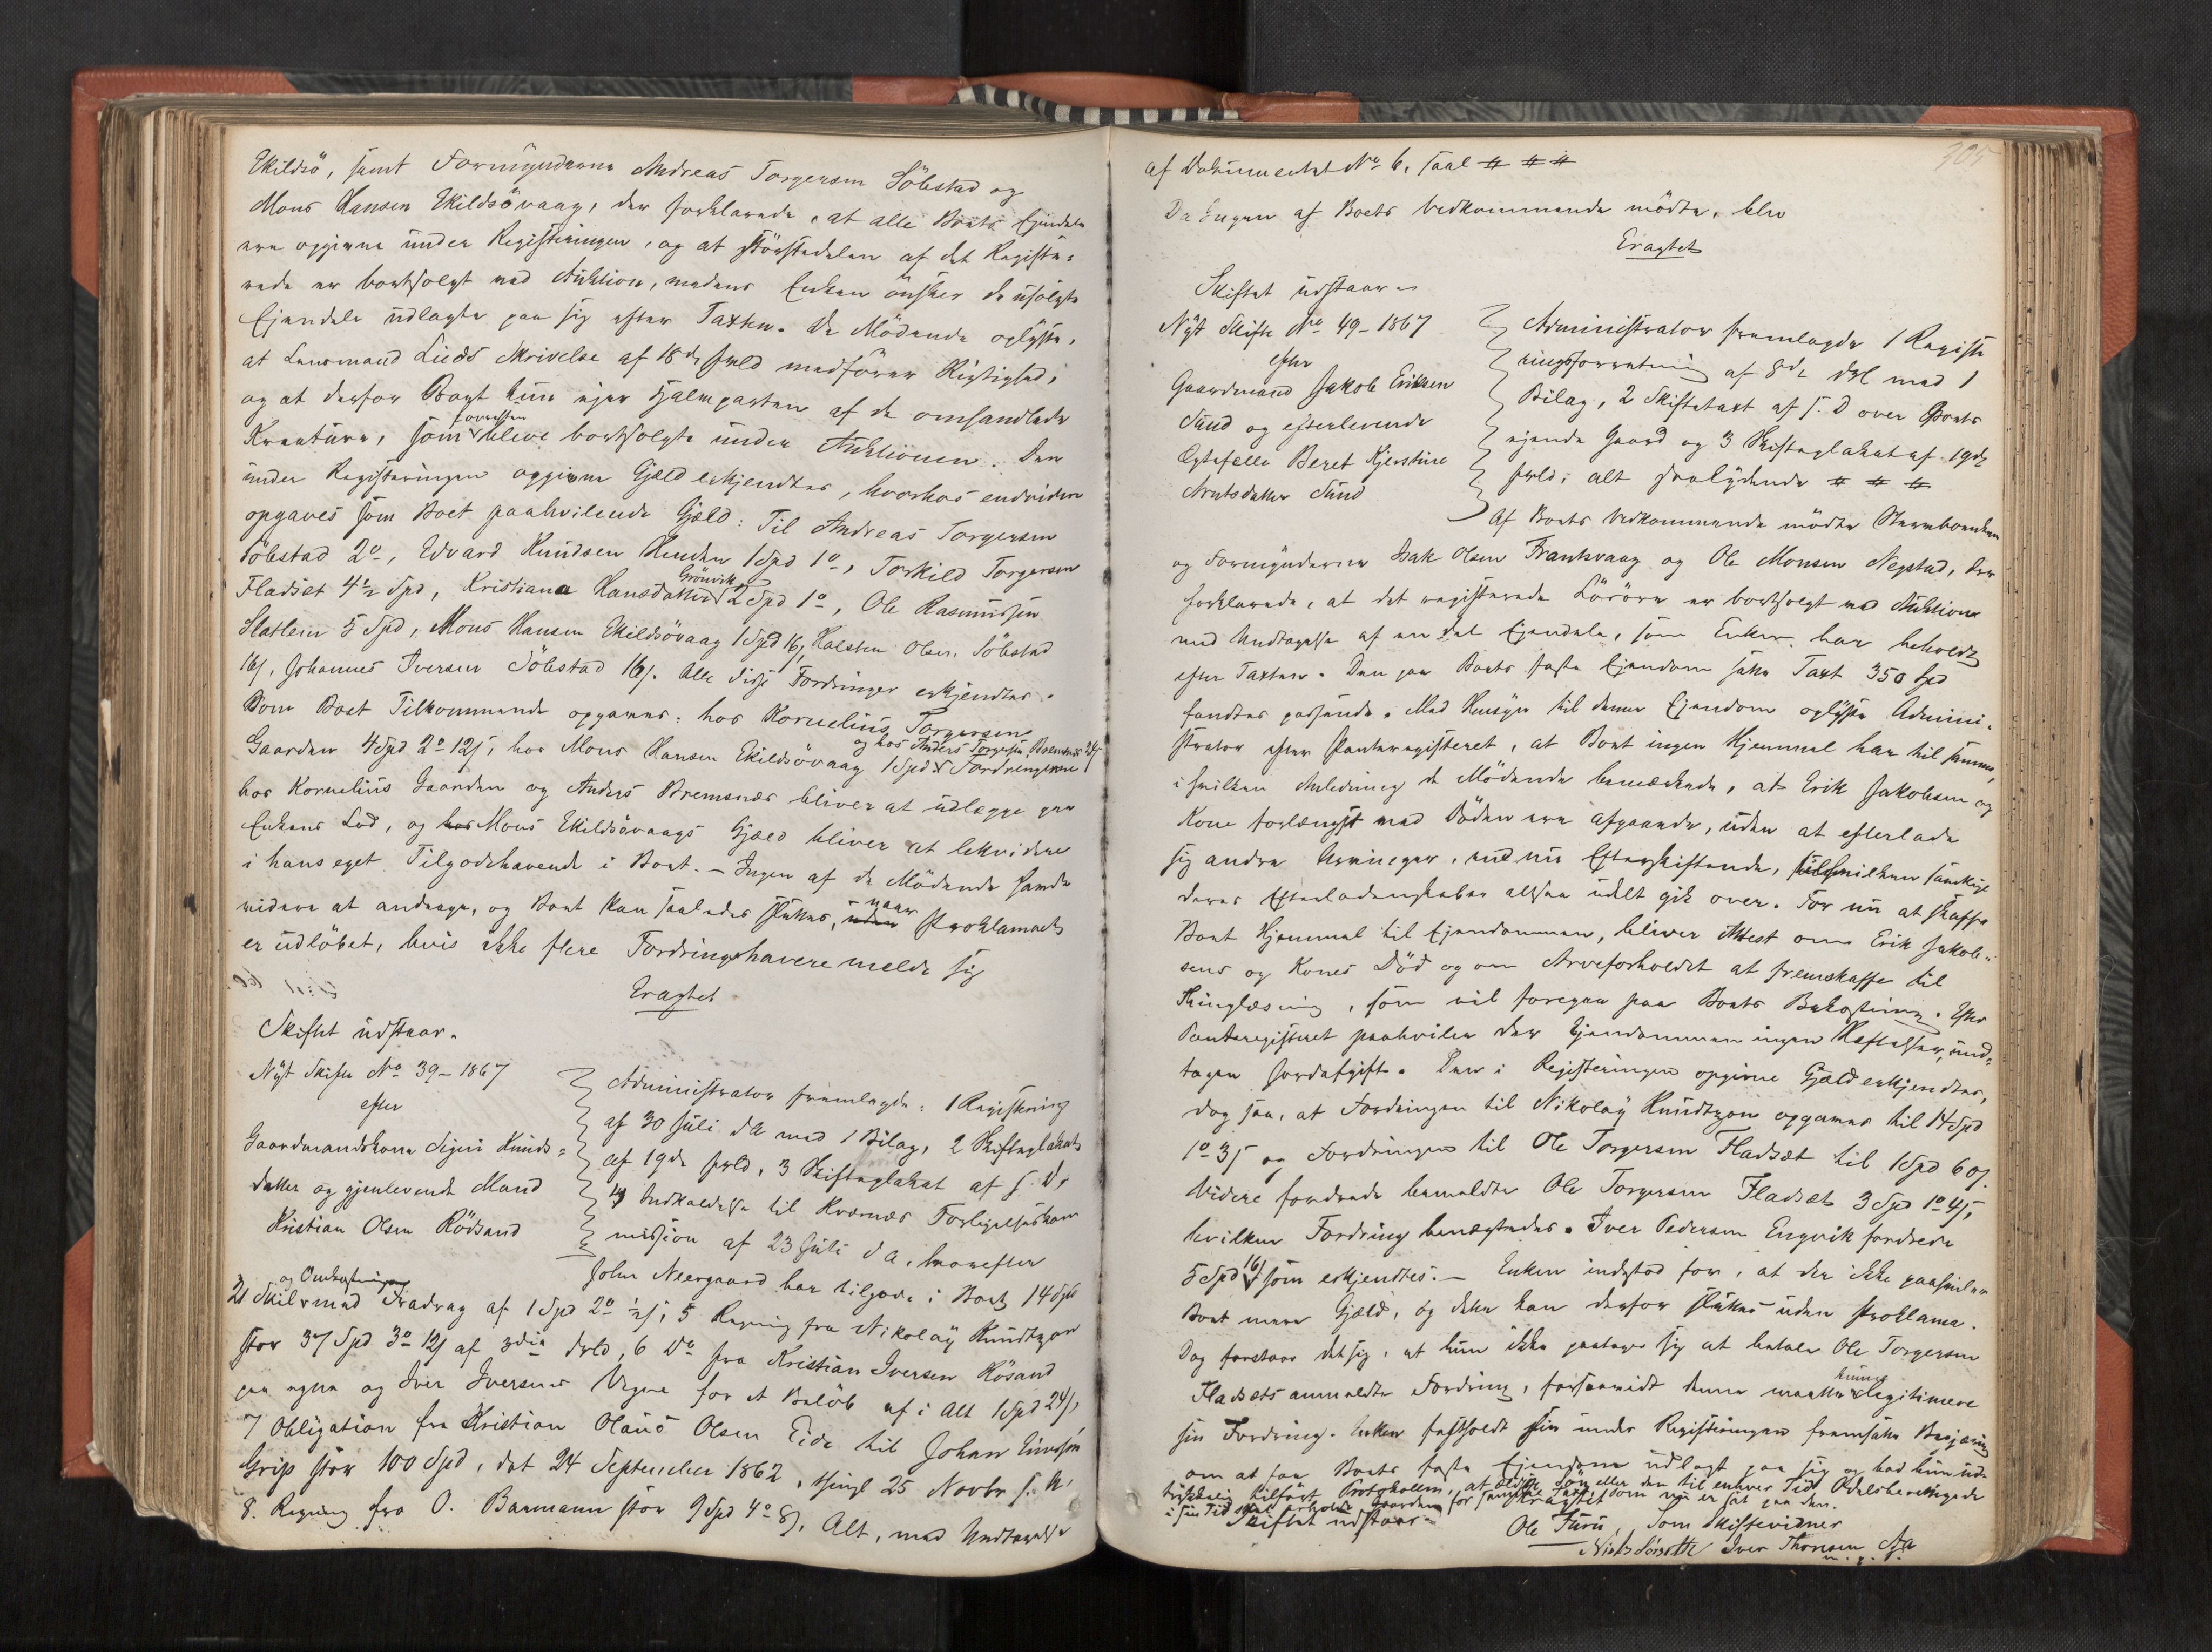 Ekildsö, samt Formynderne Andreas Torgersen Söbstad og
Mons Hansen Ekildsövaag, der forklarede, at alle Boets Ejendele
ere opgivne under Registeringen, og at störstedelen af det Registe-
rede er bortsolgt ved Auktion, medens Enken önsker de usolgte
Ejendele udlagte paa sig efter Taxten. De Mödende oplyste,
at Lensmand Lieds Skrivelse af 18de sidstl medförer Rigtighed,
og at derfor Boet kun ejer Halvparten af de omhandlede
Kreature, som bleve bortsolgte under Auktionen. Den
under Registeringen opgivne Gjæld erkjendtes, hvorhos endvidere
opgaves som Boet paahvilende Gjæld: Til Andreas Torgersen
Söbstad 2o, Edvard Knudsen Henden 1 Spd 1o, Torkild Torgersen
Fladset 4½ Spd, Kristiana Hansdatter Grönvik 2 Spd 1o, Ole Rasmussen
Slatlem 5 Spd, Mons Hansen Ekildsövaag 1 Spd 16s, Halsten Olsen Söbstad
16s, Johannes Iversen Söbstad 16s. Alle disse Fordringer erkjendtes.
Som Boet Tilkommende opgaves: hos Kornelius Torgersen
Gaarden 4 Spd 2o 12s, hos Mons Hansen Ekildsövaag 1 Spd og hos Anders Torgersen Bremsnes 24s Fordringerne
hos Kornelius Gaarden og Anders Bremsnes bliver at udlægge paa
Enkens Lod, og hos Mons Ekildsövaags Gjæld bliver at likvidere
i hans eget Tilgodehavende i Boet. – Ingen af de Mödende havde
videre at andrage, og Boet kan saaledes sluttes, uden naar Proklamaets
er udlöbet, hvis ikke flere Fordringshavere melde sig
Eragtet
Skiftet udstaar.
Nyt Skifte No 39 – 1867
efter
Gaardmandskone Sigri Knuds-
datter og gjenlevende Mand
Kristian Olsen Rödsand
Administrator fremlagde: 1 Registering
af 30 Juli d A med 1 Bilag, 2 Skifteplakat
af 19de sidstl, 3 Skifteplakat af s. D,
4 Indkaldelse til Kvernes Forligelseskom
mission af 23 Juli d A, hvorefter
John Neergaard har tilgode i Boet 14 Spd
21 Skil og Omkostninger med Fradrag af 1 Spd 2o ½s, 5 Regning fra Nikolay Knudtzon
stor 37 Spd 3o 12s af 3die dsld, 6 Do fra Kristian Iversen Kösand
paa egne og Iver Iversens Vegne for et Belöb af i Alt 1 Spd 24s,
7 Obligation fra Kristian Olaus Olsen Eide til Johan
Grip stor 100 Spd, dat 24 September 1862, thingl 25 Novbr s. A,
8. Regning fra O. Barmann stor 9 Spd 4o 8s, Alt, med Undtagelse
305
af Dokumentet No 6, saal # # #
Da Ingen af Boets Vedkommende mödte, blev
Eragtet
Skiftet udstaar.
Nyt Skifte No 49 – 1867
efter
Gaardmand Jakob Eriksen
Sund og efterlevende
Ægtefælle Beret Kjerstine
Arntsdatter Sund
Administrator fremlagde 1 Registe
ringsforretning af 8de dsl med 1
Bilag, 2 Skiftetaxt af s. D over Boets
ejende Gaard og 3 Skifteplakat af 19de
sidstl; alt saalydende # # #
Af Boets Vedkommende mödte Stervboenken
og Formynderne Isak Olsen Frankvaag og Ole Monsen Negstad, der
forklarede, at det registerede Lösöre er bortsolgt ved Auktion
med Undtagelse af en Del Ejendele, som Enken har beholdt
efter Taxten. Den paa Boets faste Ejendom satte Taxt 350 Spd
fandtes passende. Med Hensyn til denne Ejendom oplyste Admini-
strator efter Panteregisteret, at Boet ingen Hjemmel har til samme,
i hvilken Anledning de Mödende bemærkede, at Erik Jakobsen og
Kone forlængst ved Döden ere afgaaede, uden at efterlade
sig andre Arvinger, end nu Efterskiftende, til hvilken samtlige
deres Efterladenskaber altsaa udelt gik over. For nu at skaffe
Boet Hjemmel til Ejendommen, bliver Attest om Erik Jakob-
sens og Kones Död og om Arveforholdet at fremskaffe til
Thinglæsning, som vil foregaa paa Boets Bekostning. Efter
Panteregisteret paahviler der Ejendommen ingen Heftelser, und-
tagen Jordafgift. Den i Registeringen opgivne Gjæld erkjendtes,
dog saa, at Fordringen til Nikolay Knudtzon opgaves til 14 Spd
1o 3s og Fordringen til Ole Torgersen Fladsæt til 1 Spd 60s.
Videre fordrede anmeldte Ole Torgersen Fladsæt 3 Spd 1o 4s,
hvilken Fordring benægtedes. Iver Pedersen Engvik fordrede
5 Spd 16s som erkjendtes. – Enken indestod for, at der ikke paahviler
Boet mere Gjæld, og dette kan derfor sluttes uden Proklama.
Dog forstaar det sig, at hun ikke paatager sig at betale Ole Torgersen
Fladsæts anmeldte Fordring, forsaavidt denne maatte kunne legitimere
sin Fordring. Enken fastholdt sin under Registeringen fremsatte Begjæring
om at faa Boets faste Ejendom udlagt paa sig og bad hun ud-
trykkelig tilfört Protokollen, at ældste Sön eller den til enhver Tid Odelsberettigede
i sin Tid skal erholde Gaarden for samme Taxt, som nu er sat paa den.
Eragtet
Skiftet udstaar.
Ole Furu, Som Skiftevidner
Iver Thoresen